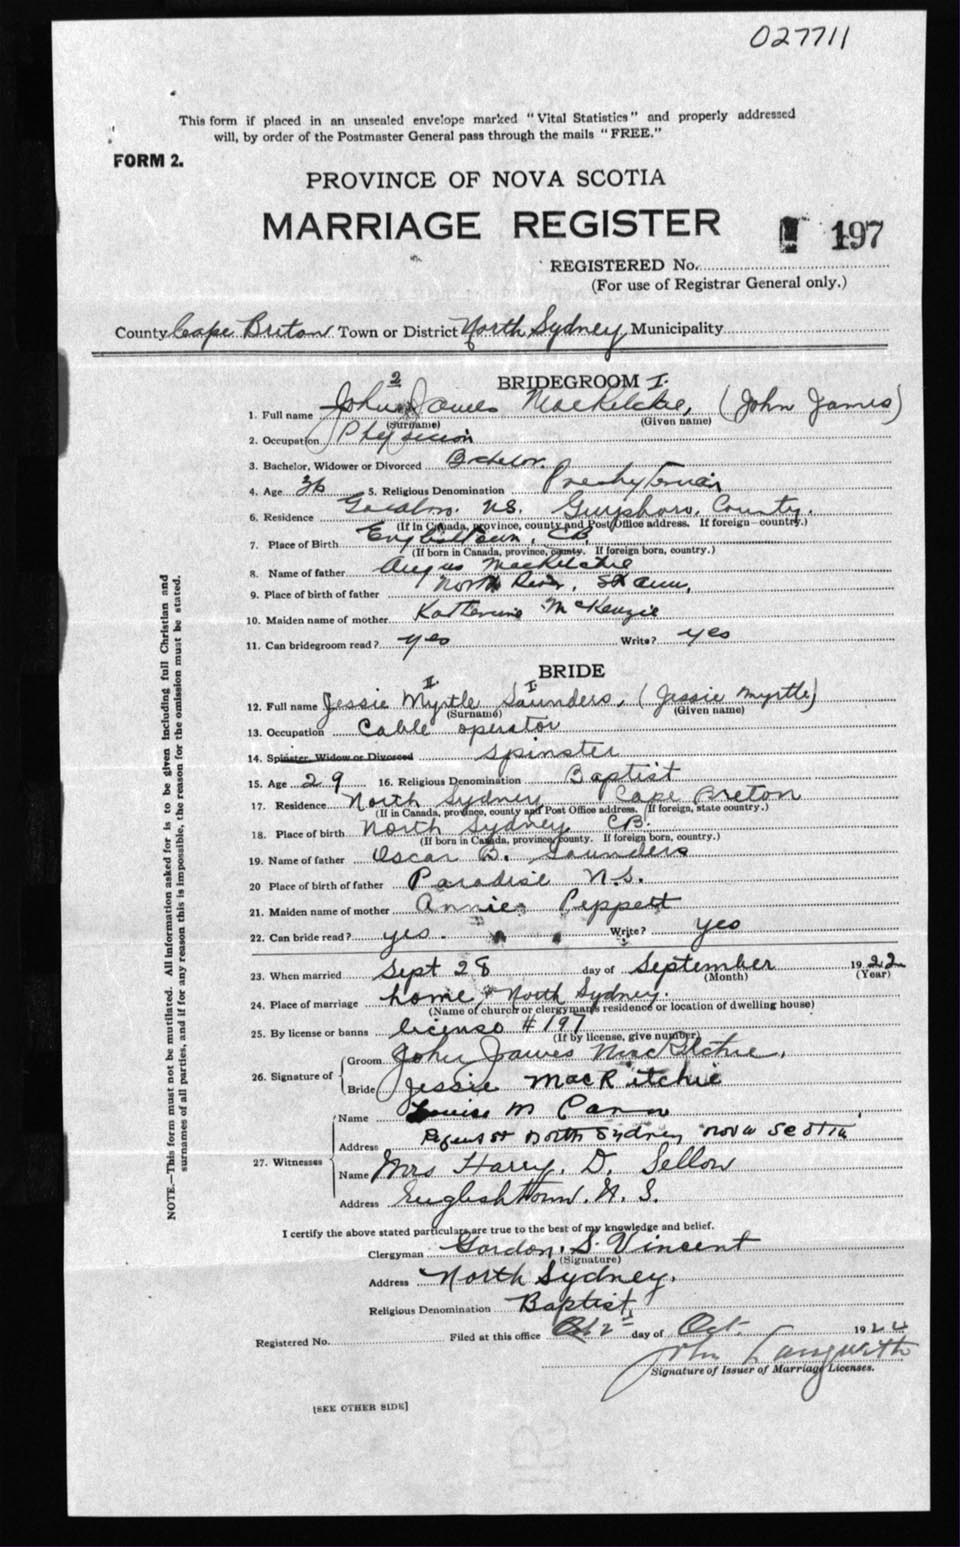 027711
This form if placed in an unsealed envelope marked "Vital Statistics" and properly addressed
will, by order of the Postmaster General pass through the mails "FREE."
FORM 2.
PROVINCE OF NOVA SCOTIA
MARRIAGE REGISTER
197
REGISTERED No.
(For use of Registrar General only.)
County Cape Breton Town or District North Sydney Municipality
BRIDEGROOM I.
2
1. Full name John James (John James)
(Surname) (Given name)
2. Occupation Physician
3. Bachelor, Widower or Divorced Bachelor.
4. Age 36 5. Religious Denomination Presbyterian
6. Residence N.S. County.
(If in Canada, province, county and Post Office address. If foreign—country.)
7. Place of Birth Englishtown, C.B.
(If born in Canada, province, county. If foreign born, country.)
8. Name of father Angus
9. Place of birth of father North River, St Anns,
10. Maiden name of mother Katherine McKenzie
11. Can bridegroom read? yes Write? yes
BRIDE
II I
12. Full name Jessie Myrtle Saunders, (Jessie Myrtle)
(Surname) (Given name)
13. Occupation Cable operator
14. Spinster, Widow or Divorced Spinster
15. Age 29 16. Religious Denomination Baptist
17. Residence North Sydney Cape Breton
(If in Canada, province, county and Post Office address. If foreign, state country.)
18. Place of birth North Sydney CB.
(If born in Canada, province, county. If foreign born, country.)
19. Name of father Oscar B. Saunders
20 Place of birth of father Paradise N.S.
21. Maiden name of mother Annie Peppett
22. Can bride read? yes. Write? yes
23. When married Sept 28 day of September 1922
(Month) (Year)
24. Place of marriage home, North Sydney.
(Name of church or clergyman's residence or location of dwelling house)
25. By license or banns license # 197
(If by license, give number)
26. Signature of
Groom John James MacRitchie.
Bride Jessie MacRitchie
27. Witnesses
Name Louise M
Address North Sydney Nova Scotia
Name Mrs Harry. D. Sellon
Address Englishtown. N. S.
I certify the above stated particulars are true to the best of my knowledge and belief.
Clergyman Gordon. S. Vincent
(Signature)
Address North Sydney.
Religious Denomination Baptist
Registered No. Filed at this office day of Oct. 19
John Langwith
Signature of Issuer of Marriage Licenses.
[SEE OTHER SIDE]
NOTE.—This form must not be mutilated. All information asked for is to be given including full Christian and
surnames of all parties, and if for any reason this is impossible, the reason for the omission must be stated.